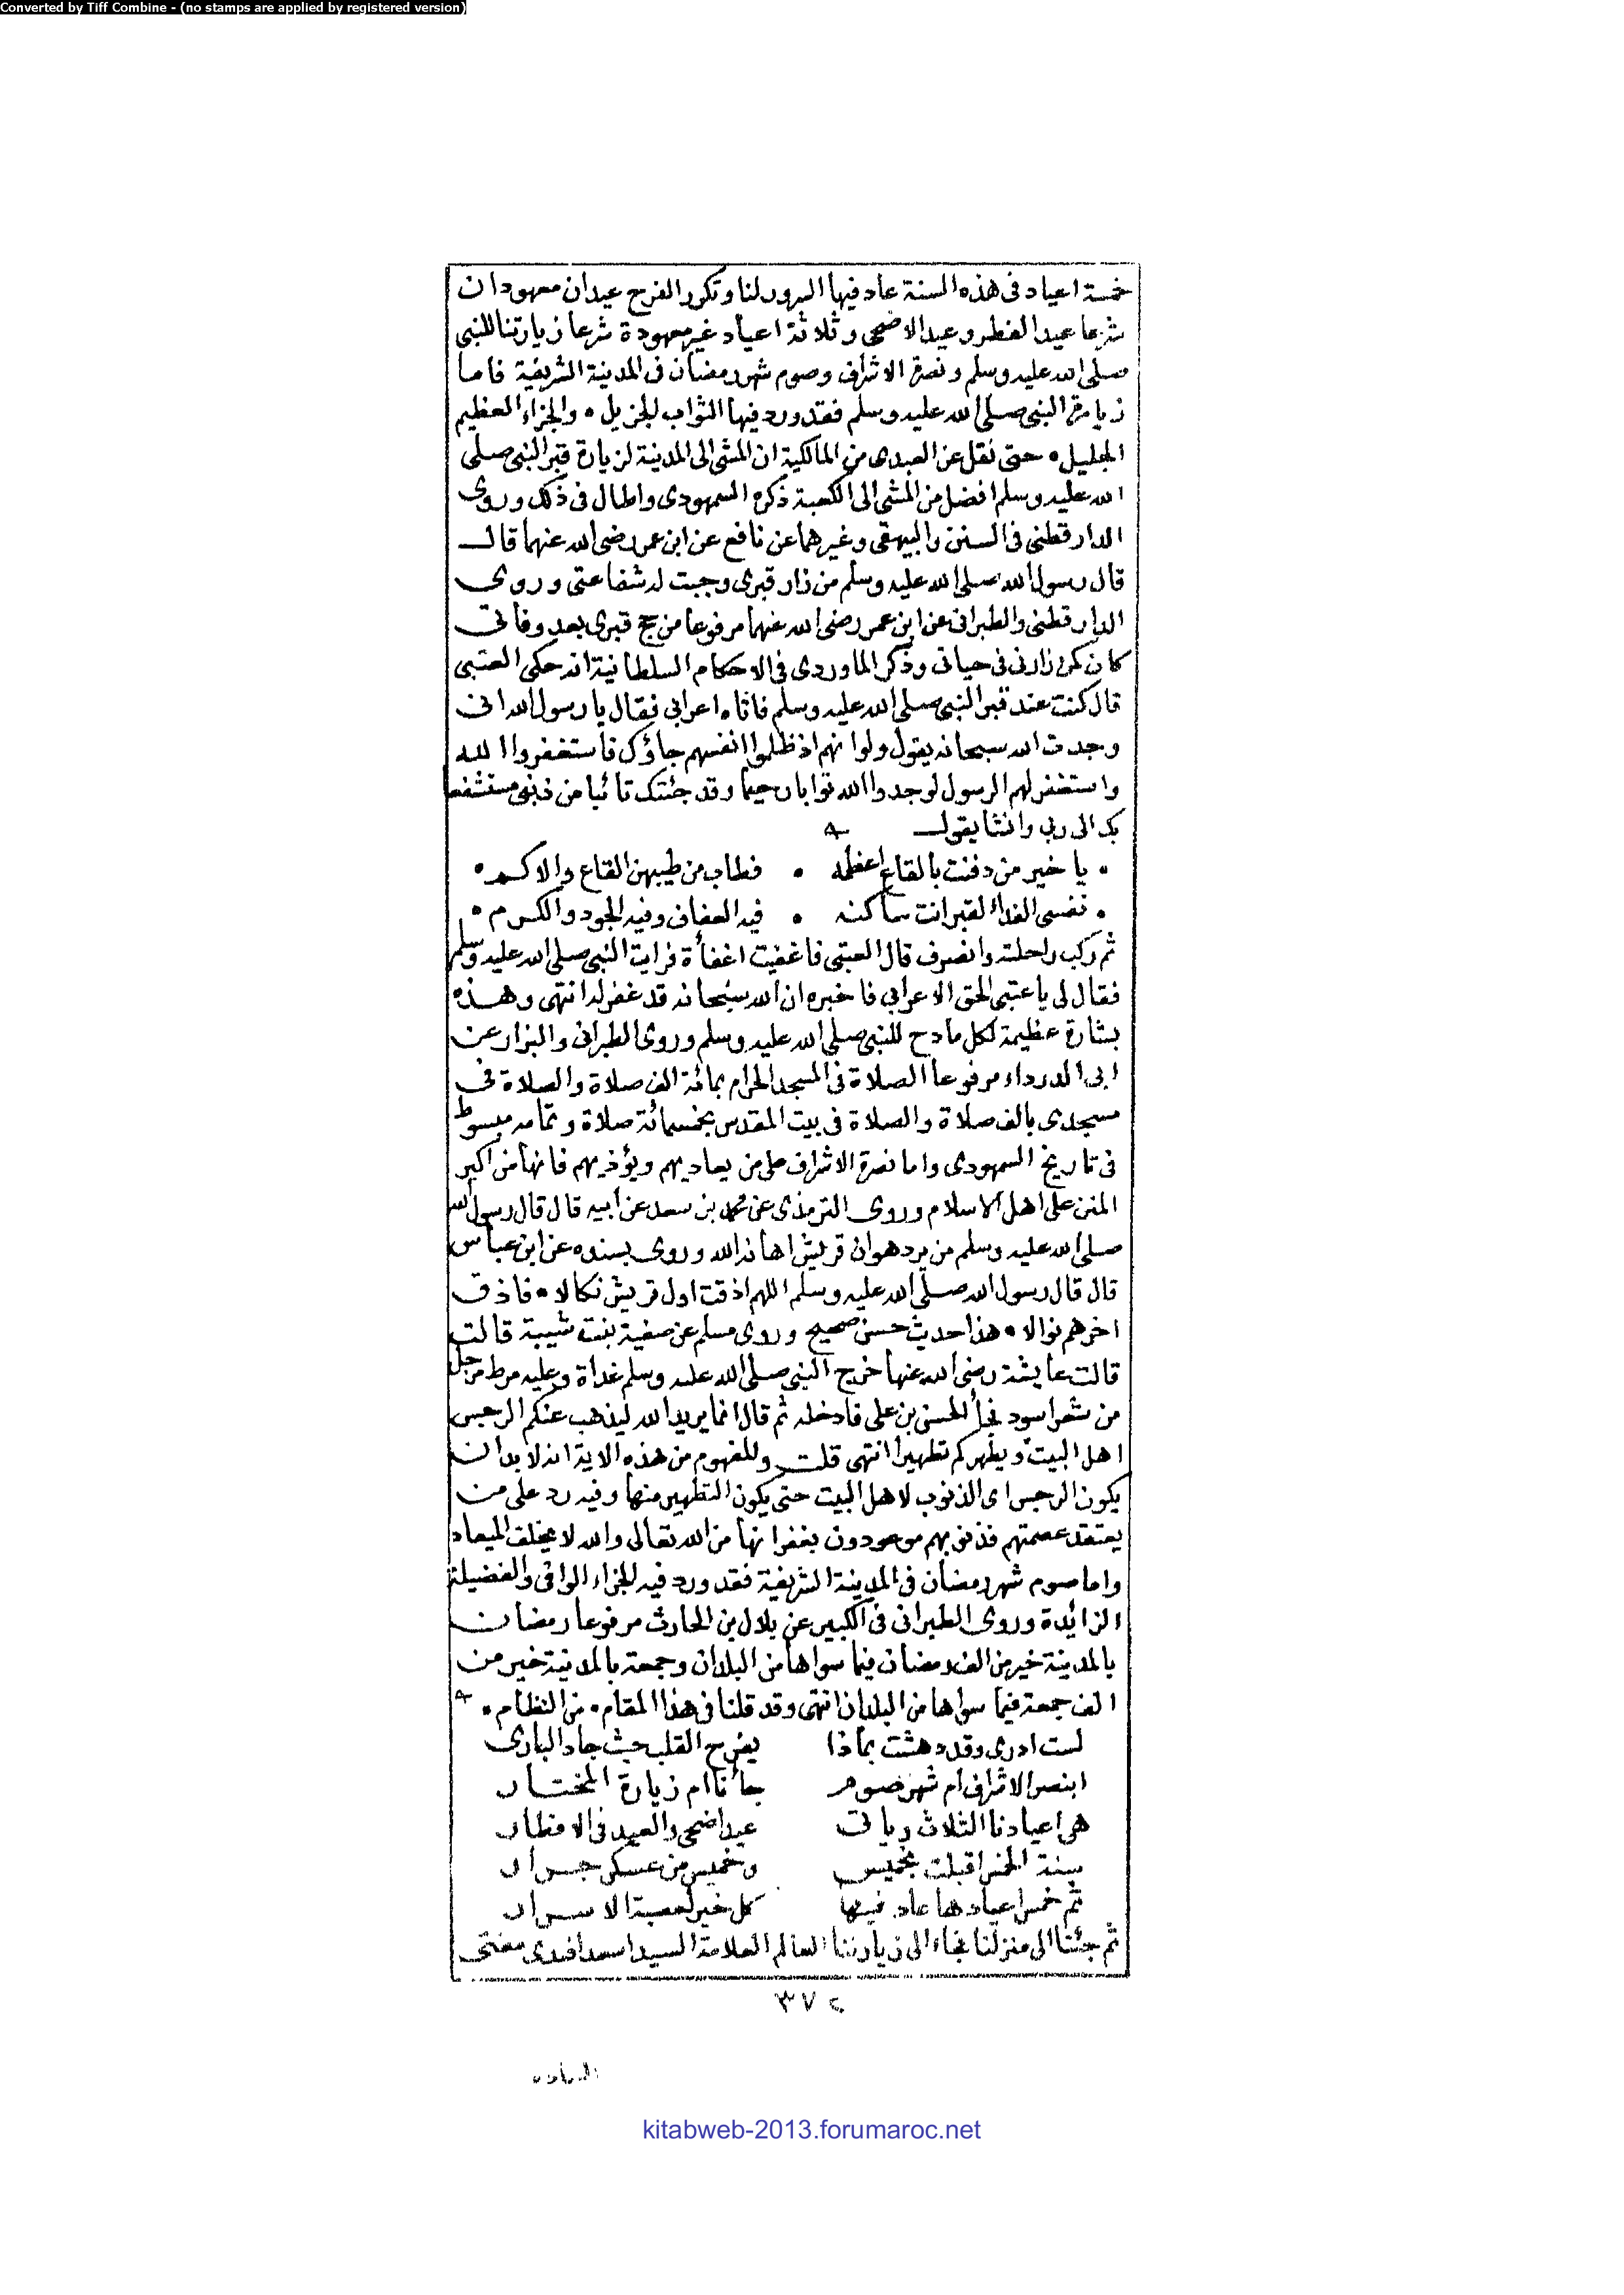 Converted by Tiff Combine - (no stamps are applied by registered version)
خمسة اعياد فى هذه السنة عاد فيها السرور لنا وتكرر الفرح عيدان معهودان
شرعا عيد الفطر وعيد الاضحى وثلاثة اعياد غير معهودة شرعا زيارتنا للنبى
صلى الله عليه وسلم ونصرة الاشراف وصوم شهر رمضان فى المدينة الشريفة فاما
زيارة النبى صلى الله عليه وسلم فقد ورد فيها الثواب الجزيل • والجزاء العظيم
الجليل • حتى نقل عن العبدى من المالكية ان المشى الى المدينة لزيارة قبر النبى صلى
الله عليه وسلم افضل من المشى الى الكعبة ذكره السمهودى واطال فى ذلك وروى
الدارقطنى فى السنن والبيهقى وغيرهما عن نافع عن ابن عمر رضى الله عنهما قال
قال رسول الله صلى الله عليه وسلم من زار قبرى وجبت له شفاعتى وروى
الدارقطنى والطبرانى عن ابن عمر رضى الله عنهما مرفوعا من حج قبرى بعد وفاتى
كان كمن زارنى فى حياتى وذكر الماوردى فى الاحكام السلطانية انه حكى العتبى
قال كنت عند قبر النبى صلى الله عليه وسلم فاتاه اعرابى فقال يا رسول الله انى
وجدت الله سبحانه يقول ولو انهم اذ ظلموا انفسهم جاؤك فاستغفروا الله
واستغفر لهم الرسول لوجدوا الله توابا رحيما وقد جئتك تائبا من ذنبى مستشفعا
بك الى ربى وانشا يقول
• يا خير من دفنت بالقاع اعظمه • فطاب من طيبهن القاع والاكم •
• نفسى الفداء لقبر انت ساكنه • فيه العفاف وفيه الجود والكرم •
ثم ركب راحلته وانصرف قال العتبى فاغفيت اغفأة فرايت النبى صلى الله عليه وسلم
فقال لى يا عتبى الحق الاعرابى فاخبره ان الله سبحانه قد غفر له انتهى وهذه
بشارة عظيمة لكل مادح للنبى صلى الله عليه وسلم وروى الطبرانى والبزار عن
ابى الدرداء مرفوعا الصلاة فى المسجد الحرام بمائة الف صلاة والصلاة فى
مسجدى بالف صلاة والصلاة فى بيت المقدس بخمسمائة صلاة وتمامه مبسوط
فى تاريخ السمهودى واما نصرة الاشراف على من يعاديهم ويؤذيهم فانها من اكبر
المنن على اهل الاسلام وروى الترمذى عن محمد بن سعد عن أبيه قال قال رسول الله
صلى الله عليه وسلم من يرد هوان قريش اهانه الله وروى بسنده عن ابن عباس
قال قال رسول الله صلى الله عليه وسلم اللهم اذقت اول قريش نكالا • فاذق
اخرهم نوالا • هذا حديث حسن صحيح وروى مسلم عن صفية بنت شيبة قالت
قالت عايشة رضى الله عنها خرج النبى صلى الله عليه وسلم غداة وعليه مرط مرجل
من شعر اسود فجأ الحسن بن على فادخله ثم قال انما يريد الله ليذهب عنكم الرجس
اهل البيت ويطهركم تطهيرا انتهى قلت والمفهوم من هذه الاية انه لا بد ان
يكون الرجس اى الذنوب لاهل البيت حتى يكون التطهير منها وفيه رد على من
يعتقد عصمتهم فذنوبهم موعودون بغفرانها من الله تعالى والله لا يخلف الميعاد
واما صوم شهر رمضان فى المدينة الشريفة فقد ورد فيه الجزاء الوافى والفضيلة
الزائدة وروى الطبرانى فى الكبير عن بلال بن الحارث مرفوعا رمضان
بالمدينة خير من الف رمضان فيما سواها من البلدان وجمعة بالمدينة خير من
الف جمعة فيما سواها من البلدان انتهى وقد قلنا فى هذا المقام • من النظام •
لست ادرى وقد دهشت بماذا يفرح القلب حيث جاد البارى
ابنصر الاشراف ام شهر صوم جأنا ام زيارة المختار
هى اعيادنا الثلاث وياتى عيد اضحى والعيد فى الافطار
سنة الخمس اقبلت بخميس وخميس من عسكر جرار
ثم خمس اعيادها عاد فيها كل خير لعصبة الاسرار
ثم جئنا الى منزلنا فجاء الى زيارتنا العالم العلامة السيد اسعد افندى مفتى
٣٧٢
kitabweb-2013.forumaroc.net